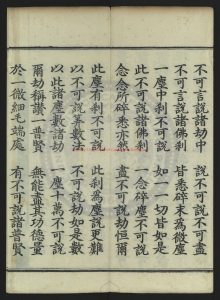 不可言說諸劫中　說不可說不可盡
不可言說諸佛剎　皆悉碎末為微塵
一塵中剎不可說　如一一切皆如是
此不可說諸佛剎　一念碎塵不可說
念念所碎悉亦然　盡不可說劫恒爾
此塵有剎不可說　此剎為塵說更難
以不可說算數法　不可說劫如是數
以此諸塵數諸劫　一塵十萬不可說
爾劫稱讚一普賢　無能盡其功德量
於一微細毛端處　有不可說諸普賢